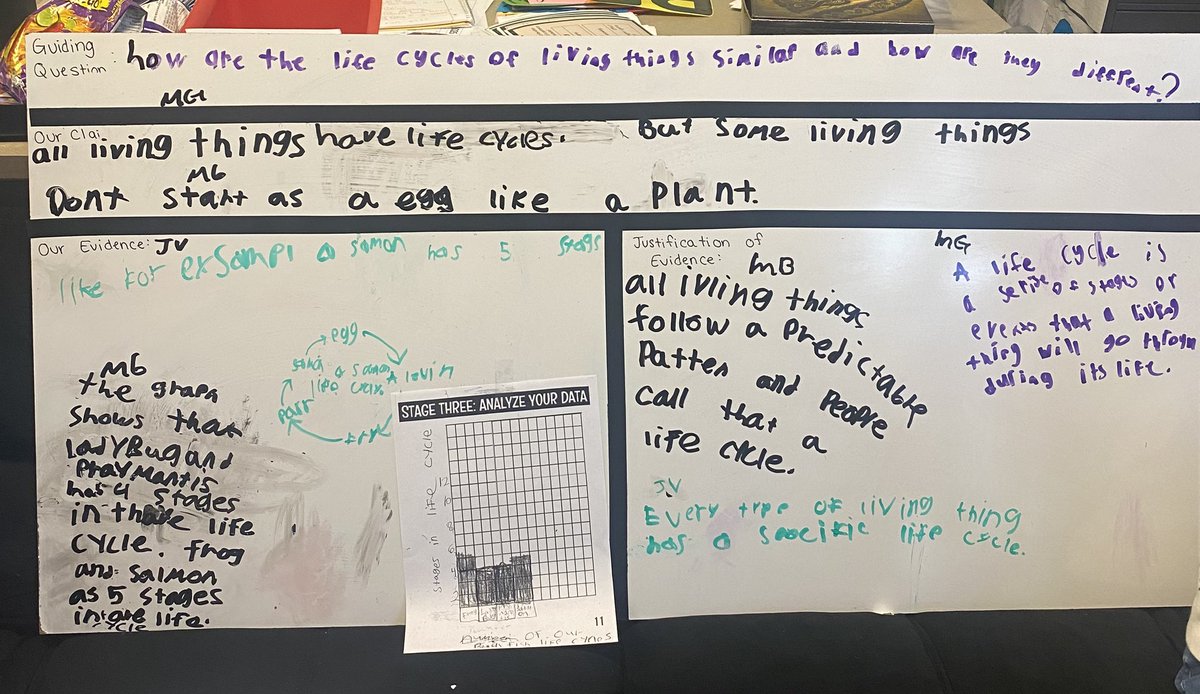 Guiding Question: how are the life cycles of living things similar and how are they different?
MG
Our Clai
all living things have life cycles. But some living things
MG
Dont start as a egg like a Plant.
Our Evidence: JV
like for exsampl a samon has 5 stags
egg
A lovin
fry
parr
a samon
life
MG
the graph
shows that
LadyBug and
PrayMantis
has 4 stages
in thare life
cycle. frog
and salmon
as 5 stages
in are life.
cycle
STAGE THREE: ANALYZE YOUR DATA
Stages in life cycle
12
10
8
6
11
of our
life cycles
Justification of
Evidence: MB
all iviing things
follow a Predictable
Patten and People
call that a
life cycle.
JV
Every type of living thing
has a specific life cycle.
MG
A life cycle is
a serise of stages or
events that a living
thing will go through
during its life.